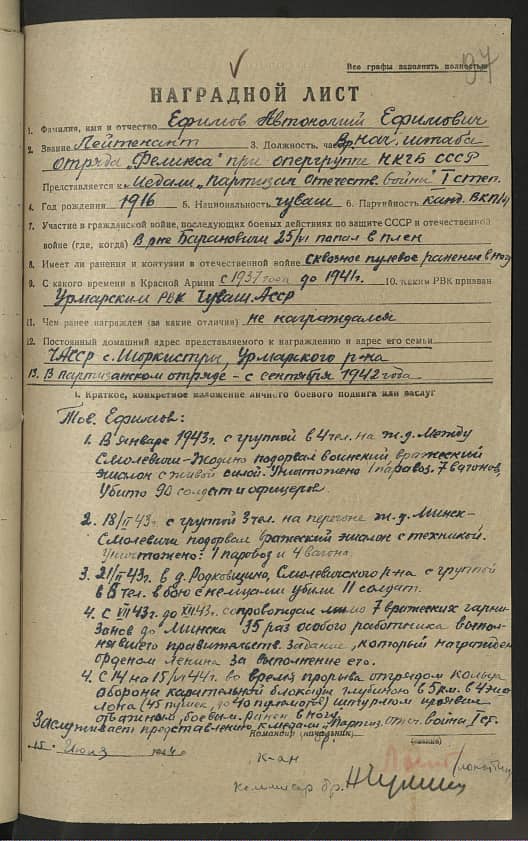 Все графы заполнить полностью
97
НАГРАДНОЙ ЛИСТ
1. Фамилия, имя и отчество Ефимов Автоногий Ефимович
2. Звание Лейтенант 3. Должность, часть Вр. нач. штаба
отряда "Феликса" при опергруппе НКГБ СССР
Представляется к медали "Партизан отечеств. войны" I степ.
4. Год рождения 1916 5. Национальность чуваш 6. Партийность канд. ВКП/б/
7. Участие в гражданской войне, последующих боевых действиях по защите СССР и отечественной
войне (где, когда) В р-не Барановичи 25/VI попал в плен
8. Имеет ли ранения и контузии в отечественной войне сквозное пулевое ранение в ногу
9. С какого времени в Красной Армии с 1937 года до 1941г. 10. Каким РВК призван
Урмарским РВК Чуваш. АССР
11. Чем ранее награжден (за какие отличия) не награждался
12. Постоянный домашний адрес представляемого к награждению и адрес его семьи
ЧАССР с. Шоркистры, Урмарского р-на
13. В партизанском отряде - с сентября 1942 года
I. Краткое, конкретное изложение личного боевого подвига или заслуг
Тов. Ефимов:
1. В январе 1943г. с группой в 4 чел. на ж.д. между
Смолевичи-Жодино подорвал воинский вражеский
эшелон с живой силой. Уничтожено 1 паровоз, 7 вагонов,
Убито 90 солдат и офицеров.
2. 18/II 43г. с группой 3 чел. на перегоне ж.д. Минск-
Смолевичи подорвал вражеский эшелон с техникой.
Уничтожено: 1 паровоз и 4 вагона.
3. 21/II-43г. в д. Родковщина, Смолевичского р-на с группой
в 8 чел. в бою с немцами убили 11 солдат.
4. С VII 43г. до XII 43г. сопровождал мимо 7 вражеских гарни-
зонов до Минска 35 раз особого работника выпол-
нявшего правительств. задание, который награжден
орденом Ленина за выполнение его.
4. С 14 на 15/VI 44г. во время прорыва отрядом кольца
обороны карательной блокады глубиною в 5 км. в 4 эше-
лона (45 пушек, до 40 пулеметов) штурмом проявил
отважным, боевым. Ранен в ногу.
Заслуживает представлению к медали "Партиз. отеч. войны" I ст.
Командир (начальник)
(подпись)
15. июля 1944 г.
К-ан
Комиссар бр.